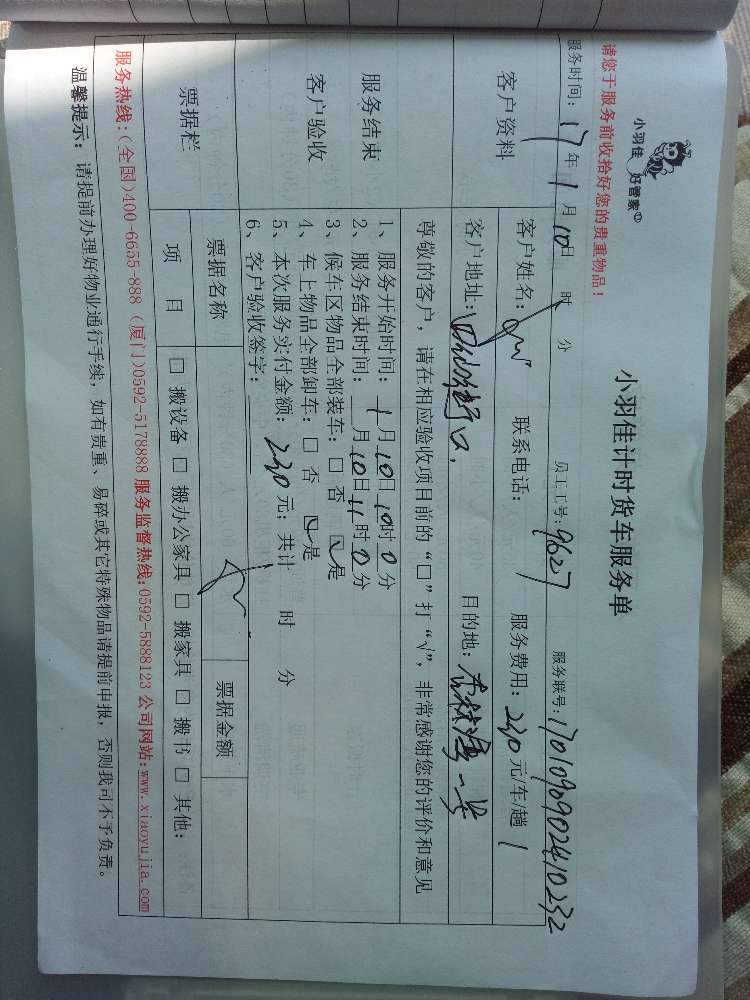 小羽佳 好管家
小羽佳计时货车服务单
请您于服务前收拾好您的贵重物品！
服务时间：17年1月10日 时 分 员工工号：9627 服务联号：1701090902410232
客户资料
客户姓名： 联系电话： 服务费用：230元/车/趟 1
客户地址： 口. 目的地： 一号
服务结束
客户验收
尊敬的客户，请在相应验收项目前的“□”打“√”，非常感谢您的评价和意见
1、服务开始时间：1月10日10时0分
2、服务结束时间：月10日11时0分
3、候车区物品全部装车：□ 否 ☑ 是
4、车上物品全部卸车：□ 否 ☑ 是
5、本次服务实付金额：230元；共计 时 分
6、客户验收签字：
票据栏
票据名称 票据金额
项目 □ 搬设备 □ 搬办公家具 □ 搬家具 □ 搬书 □ 其他：
服务热线：(全国)400-6655-888 (厦门)0592-5178888 服务监督热线：0592-5888123 公司网站：www.xiaoyujia.com
温馨提示：请提前办理好物业通行手续，如有贵重、易碎或其它特殊物品请提前申报，否则我司不予负责。